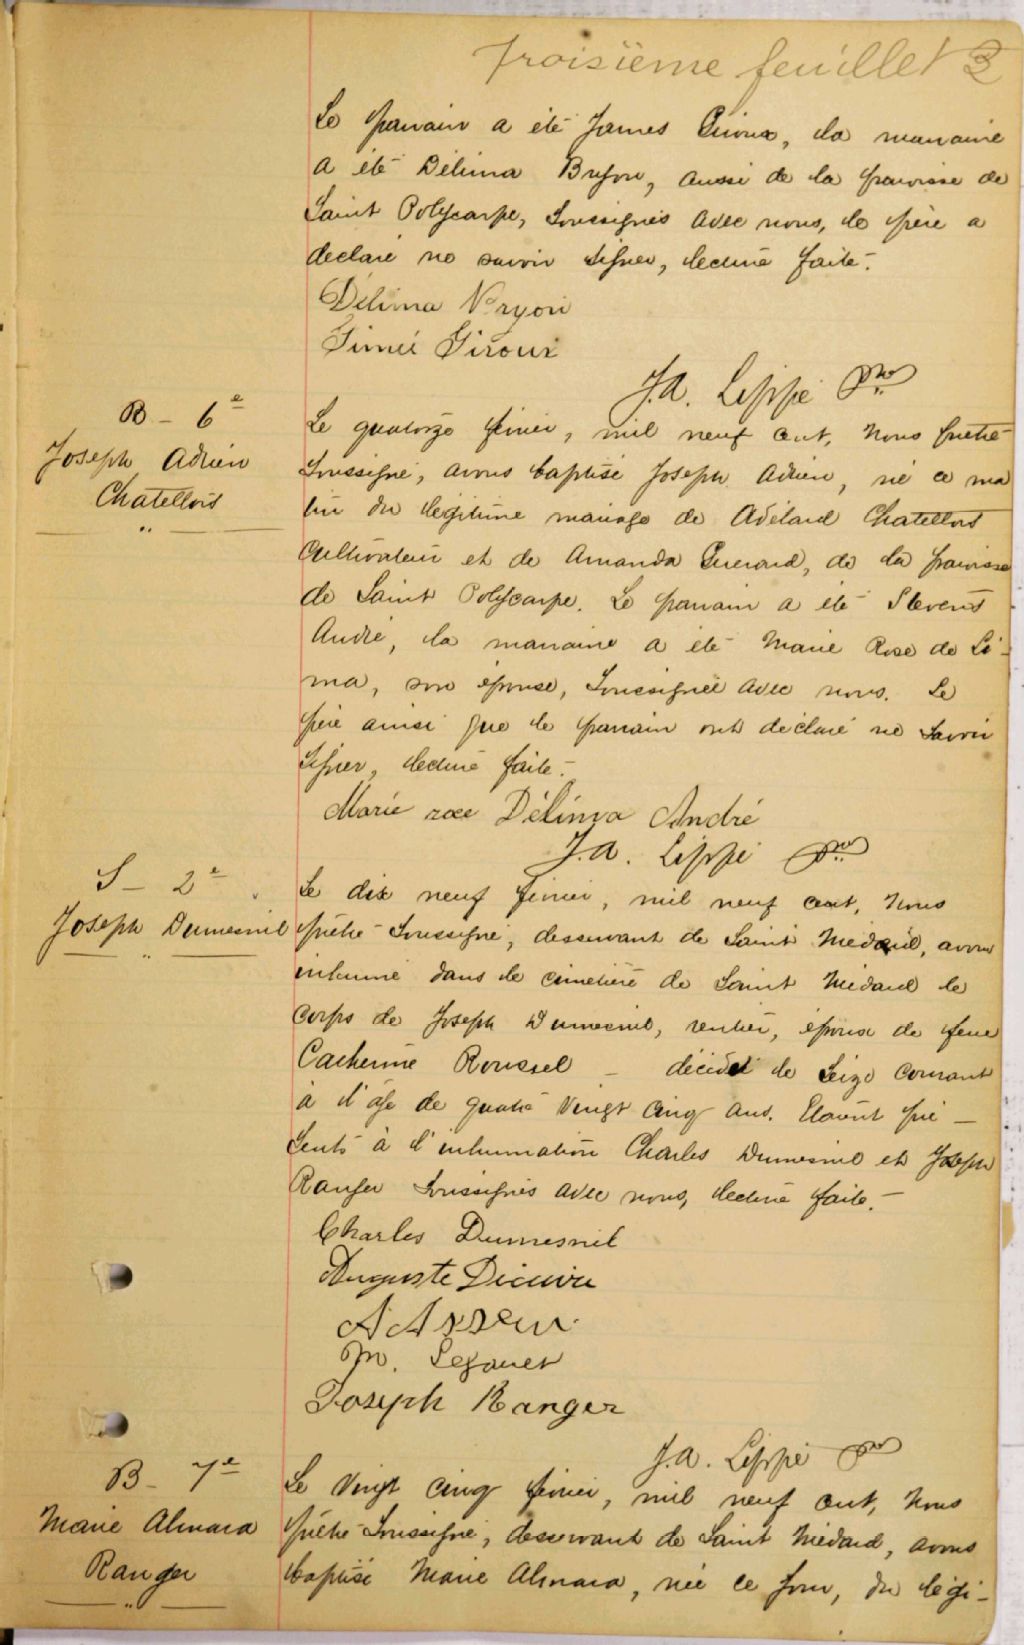 Troisième feuillet 3
Le parrain a été James Giroux, la marraine
a été Délima Bryon, aussi de la paroisse de
Saint Polycarpe, soussignés avec nous, le père a
declaré ne savoir signer, lecture faite.
Délima Bryon
Giroux
J.A. Lippé Ptre
B - 6e
Joseph Adrien
Chatellois
Le quatorze février, mil neuf cent, nous prêtre
soussigné, avons baptisé Joseph Adrien, né ce ma
tin du légitime mariage de Adélard Chatellois
cultivateur et de Amanda Guerard, de la paroisse
de Saint Polycarpe. Le parrain a été Stevens
André, la marraine a été Marie Rose de Li-
ma, son épouse, soussignée avec nous. Le
père ainsi que le parrain ont déclaré ne savoir
signer, lecture faite.
Marie roze Délima André
J.A. Lippé Ptre
S - 2e
Joseph Dumesnil
Le dix neuf février, mil neuf cent, nous
prêtre soussigné, desservant de Saint Médard, avons
inhumé dans le cimetière de Saint Médard le
corps de Joseph Dumesnil, rentier, époux de feue
Catherine Roussel - décédé le seize courant
à l'âge de quatre vingt cinq ans. Etaient pré-
sents à l'inhumation Charles Dumesnil et Joseph
Ranger soussignés avec nous, lecture faite.
Charles Dumesnil
Auguste
M.
Joseph Ranger
J.A. Lippé Ptre
B - 7e
Marie Almara
Ranger
Le vingt cinq février, mil neuf cent, nous
prêtre soussigné, desservant de Saint Médard, avons
baptisé Marie Almara, née ce jour, du légi-